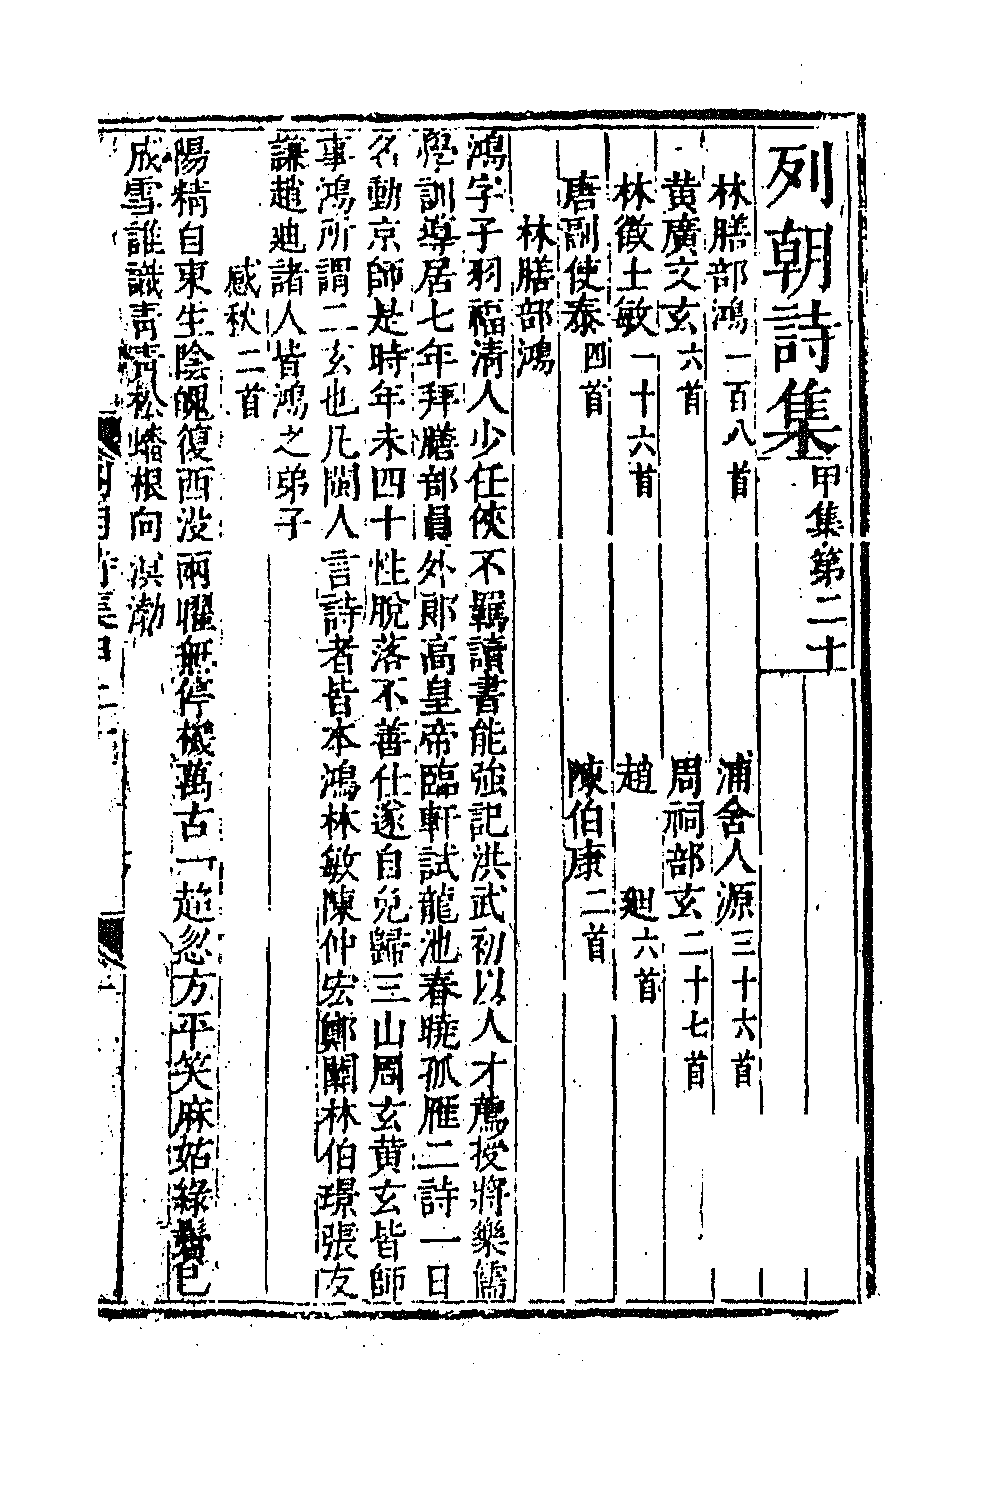 列朝詩集甲集第二十
林膳部鴻一百八首　浦舍人源三十六首
黄廣文玄六首　周祠部玄二十七首
林徵士敏一十六首　趙迪六首
唐副使泰四首　陳伯康二首
林膳部鴻
鴻字子羽福清人少任俠不羈讀書能強記洪武初以人才薦授將樂儒
學訓導居七年拜膳部員外郎高皇帝臨軒試龍池春曉孤雁二詩一日
名動京師是時年未四十性脫落不善仕遂自免歸三山周玄黄玄皆師
事鴻所謂二玄也凡閩人言詩者皆本鴻林敏陳仲宏鄭關林伯璟張友
謙趙迪諸人皆鴻之弟子
感秋二首
陽精自東生陰魄復西没兩曜無停機萬古一趂忽方平笑麻姑綠鬢已
成雪誰識青青松蟠根向溟渤